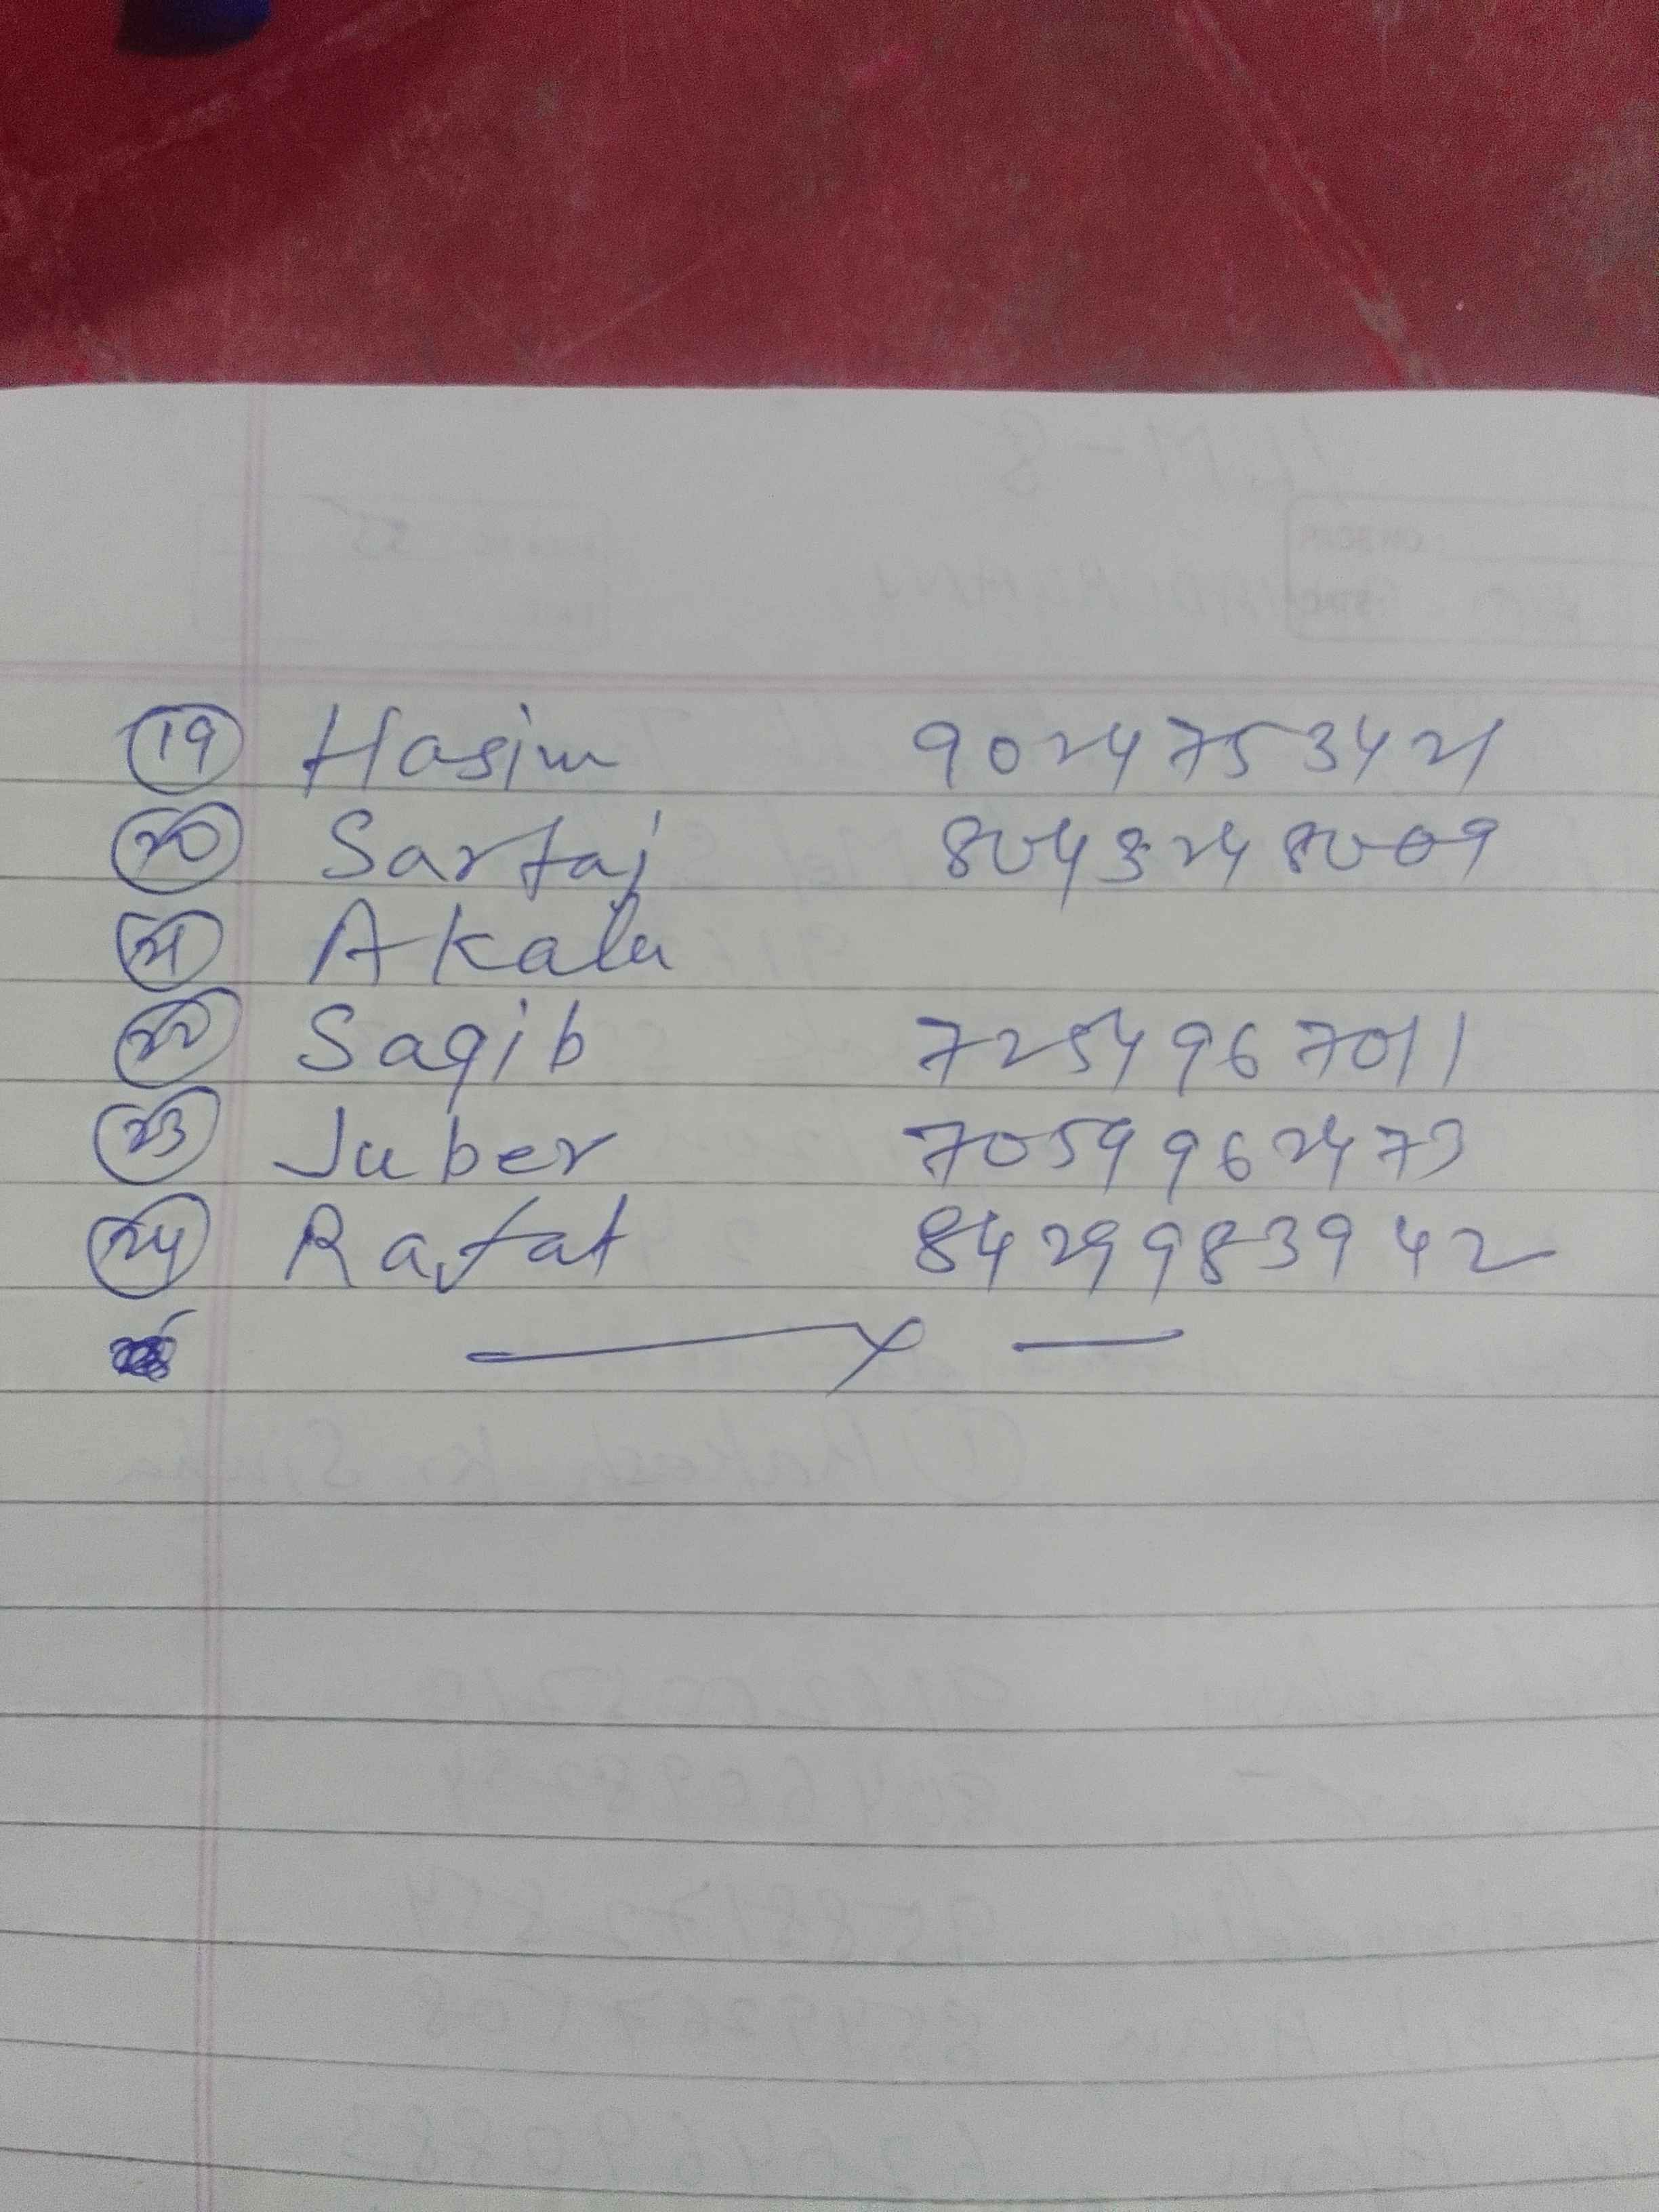 19 Hasim 9024753421
20 Sartaj 8043248009
21 Akalu
22 Saqib 7254967011
23 Juber 7059962473
24 Rafat 8429983942
— x —